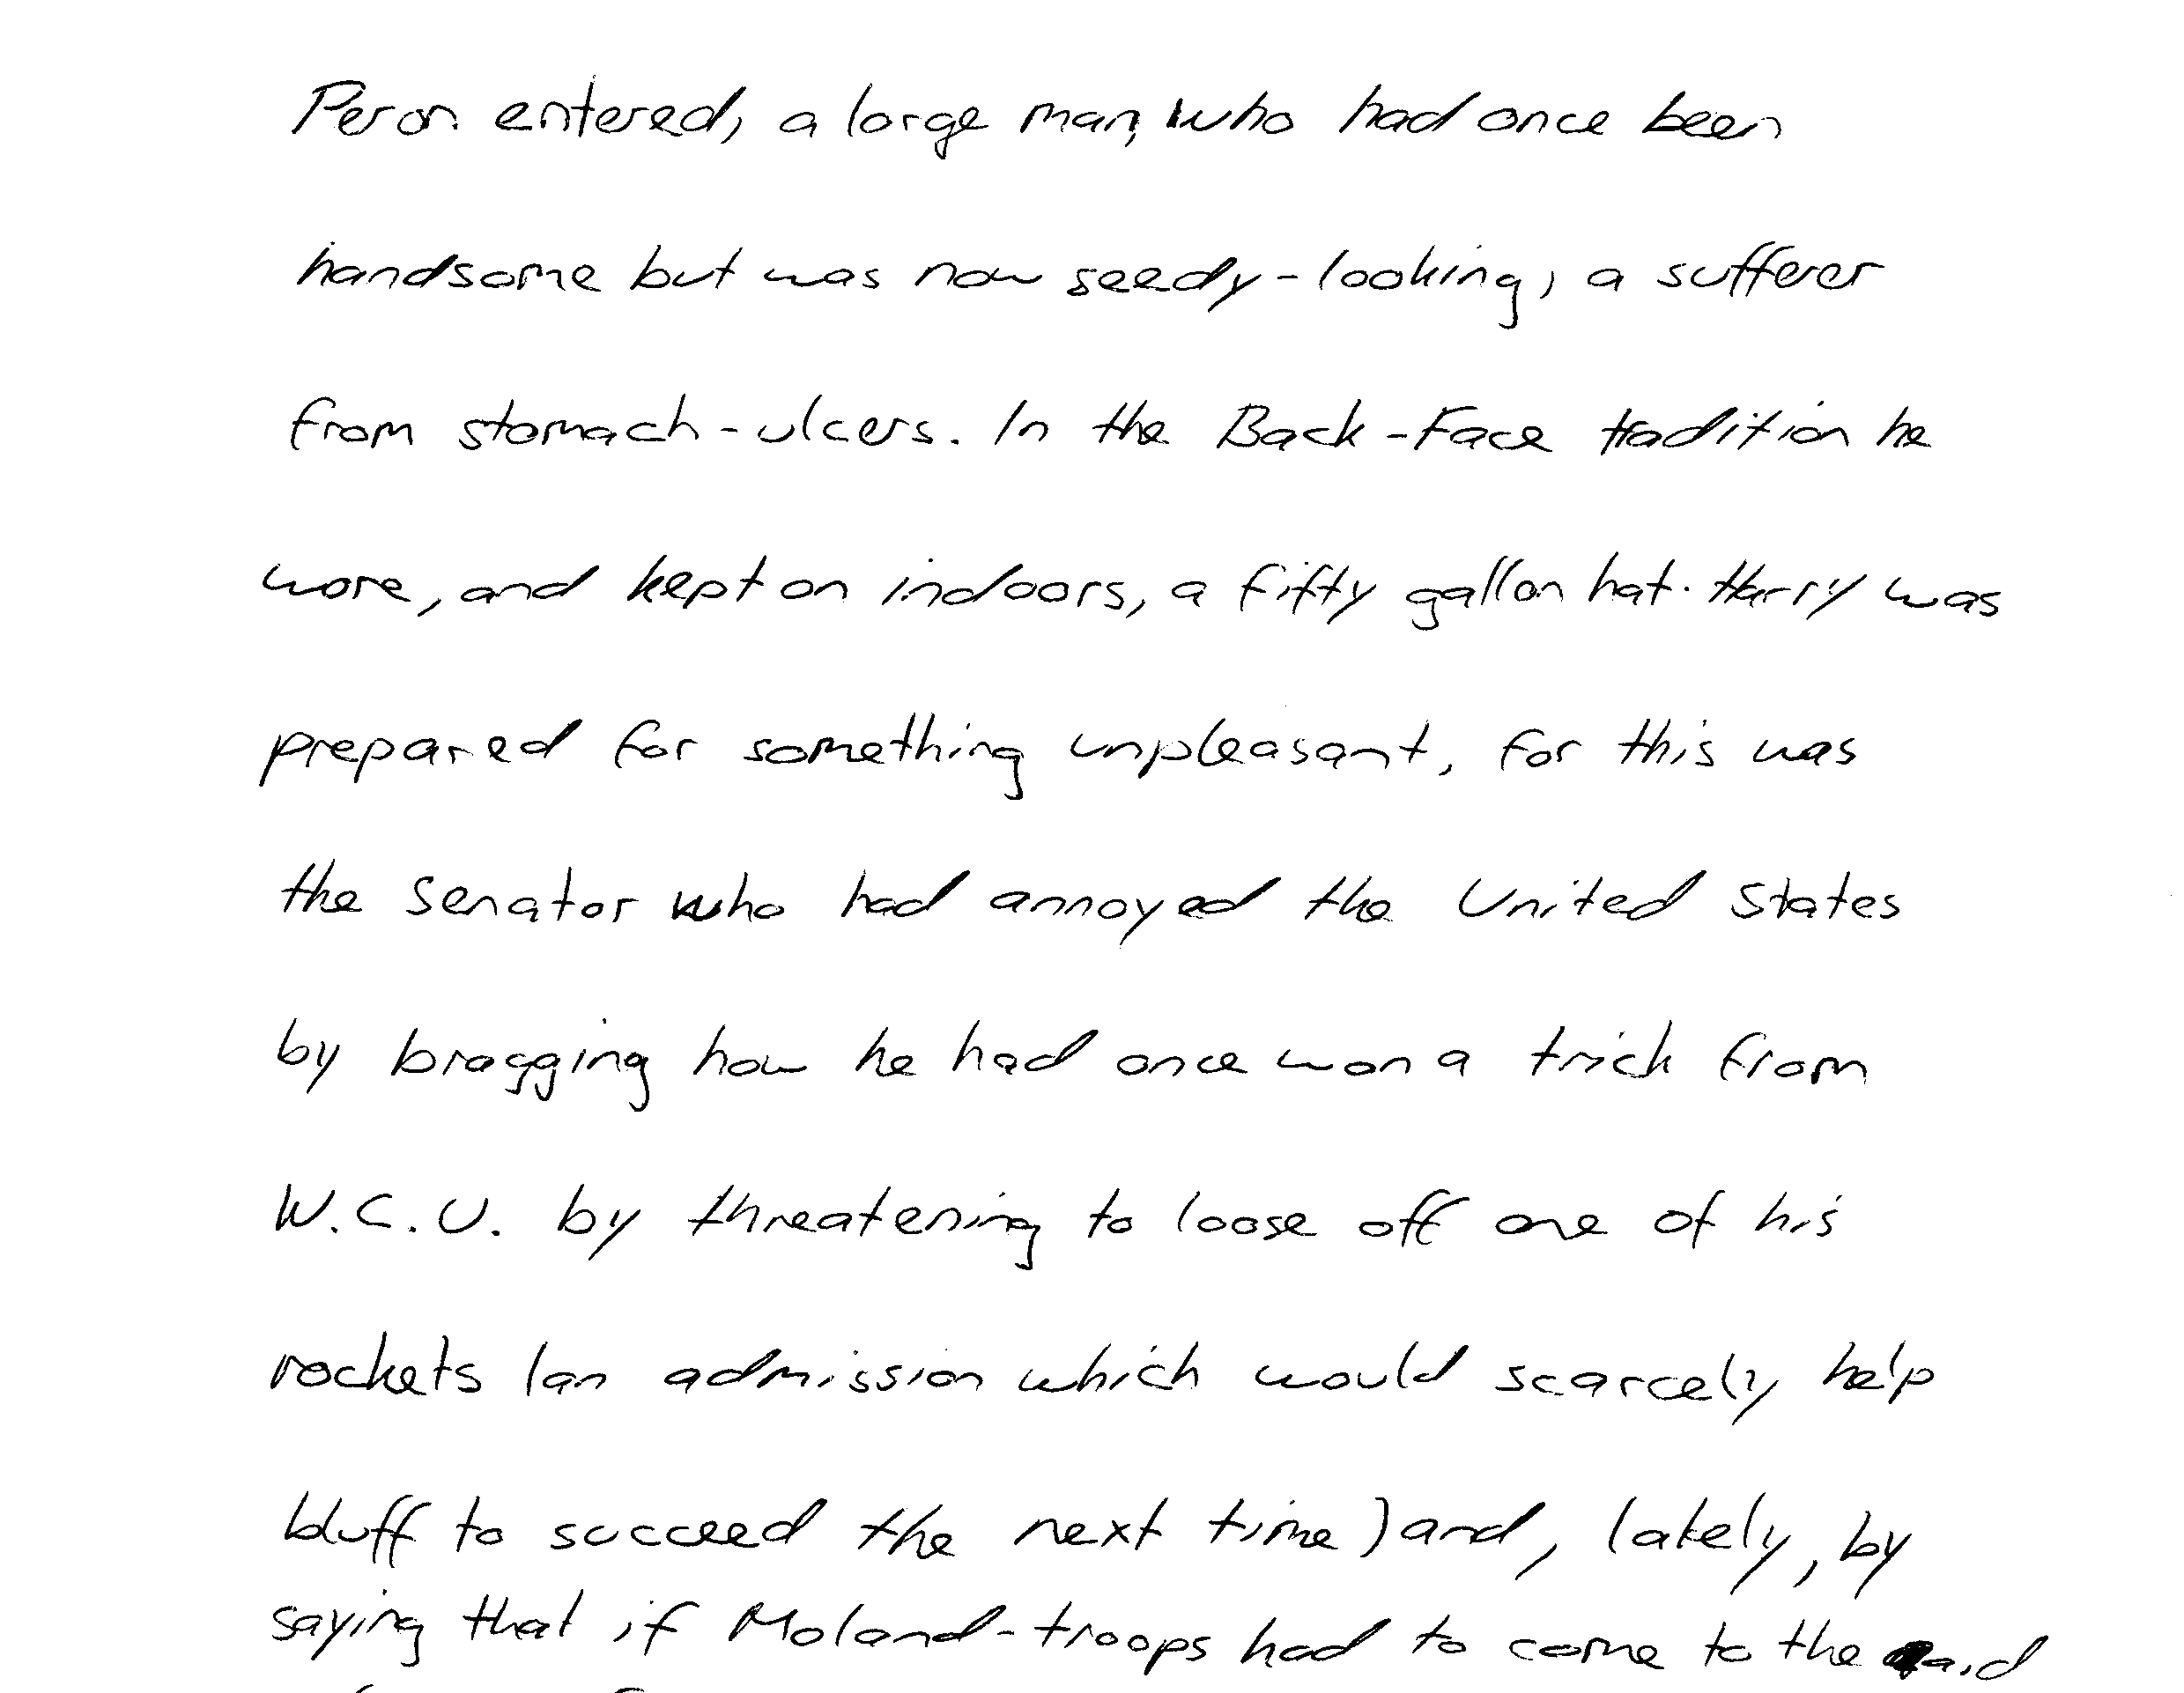 Peron entered, a large man, who had once been
handsome but was now seedy-looking, a sufferer
from stomach-ulcers. In the Back-Face tradition he
wore, and kept on indoors, a fifty gallon hat. Harry was
prepared for something unpleasant, for this was
the senator who had annoyed the United States
by bragging how he had once won a trick from
W.C.U. by threatening to loose off one of his
rockets (an admission which would scarcely help
bluff to succeed the next time) and, lately, by
saying that if Moland-troops had to come to the aid